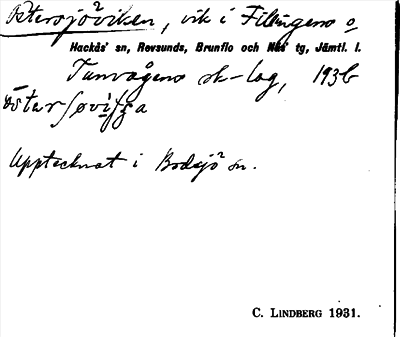 Östersjöviken, vik i Fillingens o
Hackås' sn, Revsunds, Brunflo och Näs' tg, Jämtl. l.
sk-lag, 193b
Upptecknat i Bodsjö sn.
C. LINDBERG 1931.